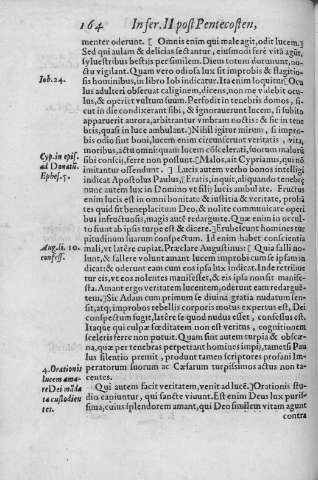 164 In fer. II post Pentecosten,
menter oderunt. [ Omnis enim qui male agit, odit lucem.]
Sed qui aulam & delicias sectantur, eiusmodi ferè vitã agũt,
syluestribus bestiis per similem. Diem totum dormiunt, no-
ctu vigilant. Quam vero odiosa lux sit improbis & flagitio-
Iob. 24.
sis hominibus, in libro Iob indicatur. Ita enim loquitur: Ocu
lus adulteri obseruat caliginem, dicens, non me videbit ocu-
lus, & operiet vultum suum. Perfodit in tenebris domos, si-
cut in die condixerant sibi, & ignorauerunt lucem, si subito
apparuerit aurora, arbitrantur vmbram noctis: & sic in tene
bris, quasi in luce ambulant. ] Nihil igitur mirum, si impro-
bis odio sunt boni, lucem enim circumferunt veritatis, vita,
moribus, actu omni: quam lucem cõscelerati, suorum malorũ
Cyp. in epis.
ad Donatũ.
sibi conscii, ferre non possunt. [ Malos, ait Cyprianus, qui nõ
imitantur offendunt. ] Lucis autem verbo bonos intelligi
Ephes. 5.
indicat Apostolus Paulus, [ Eratis, inquit, aliquando tenebrę
nunc autem lux in Domino vt filij lucis ambulate. Fructus
enim lucis est in omni bonitate & iustitia & veritate, probã
tes quid sit beneplacitum Deo, & nolite communicare operi
bus infructuosis, magis autẽ redarguite. Quæ enim in occul-
to fiunt ab ipsis turpe est & dicere. ] Erubescunt homines tur
pitudinom suarum conspectum. Id enim habet conscientia
Aug. li. 10.
confess.
mali, vt latêre cupiat. Præclare Augustinus: [ Quia falli no-
lunt, & fallere volunt amant lucem improbi cum se ipsam in
dicat: & oderunt eam cum eos ipsa lux indicat. Inde retribue
tur eis, vt eos nolentes manifestet, & eis ipsa non sit manife-
sta. Amant ergo veritatem lucentem, oderunt eam redarguẽ-
tem. ] Sic Adam cum primum se diuina gratia nudatum sen-
sit, atq; improbos rebellis corporis motus expertus est, Dei
conspectum fugit, latêre se quod nudus esset, confessus est.
Itaque qui culpæ fœditatem non est veritus, cognitionem
sceleris ferre non potuit. Quam sint autem turpia & obscæ-
na, quæ per tenebras perpetrant homines impij, tametsi Pau
lus silentio premit, produnt tamen scriptores profani Im-
4. Orationis
lucem ama-
re Dei mãda
ta custodien
tes.
peratorum suorum ac Cæsarum turpissimos actus non ta-
centes.
Qui autem facit veritatem, venit ad lucẽ. ] Orationis stu-
dio capiuntur, qui sanctè viuunt. Est enim Deus lux puris-
sima, cuius splendorem amant, qui Deo similem vitam agunt
contra